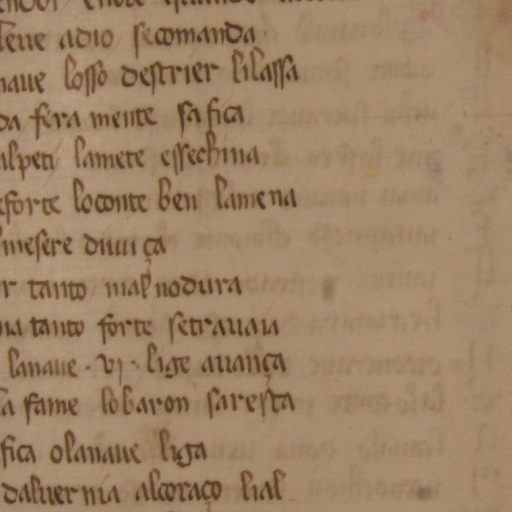 leue adio secomanda
naue losso destrier lilassa
da fera mente safica
alpeti lamete essechina
eforte loconte ben lamena
mesere diuiça
r tanto mal nodura
ma tanto forte setrauaia
lanaue · vi · lige auança
la fame lobaron saresta
fica olanaue liga
daluernia alcoraço lial